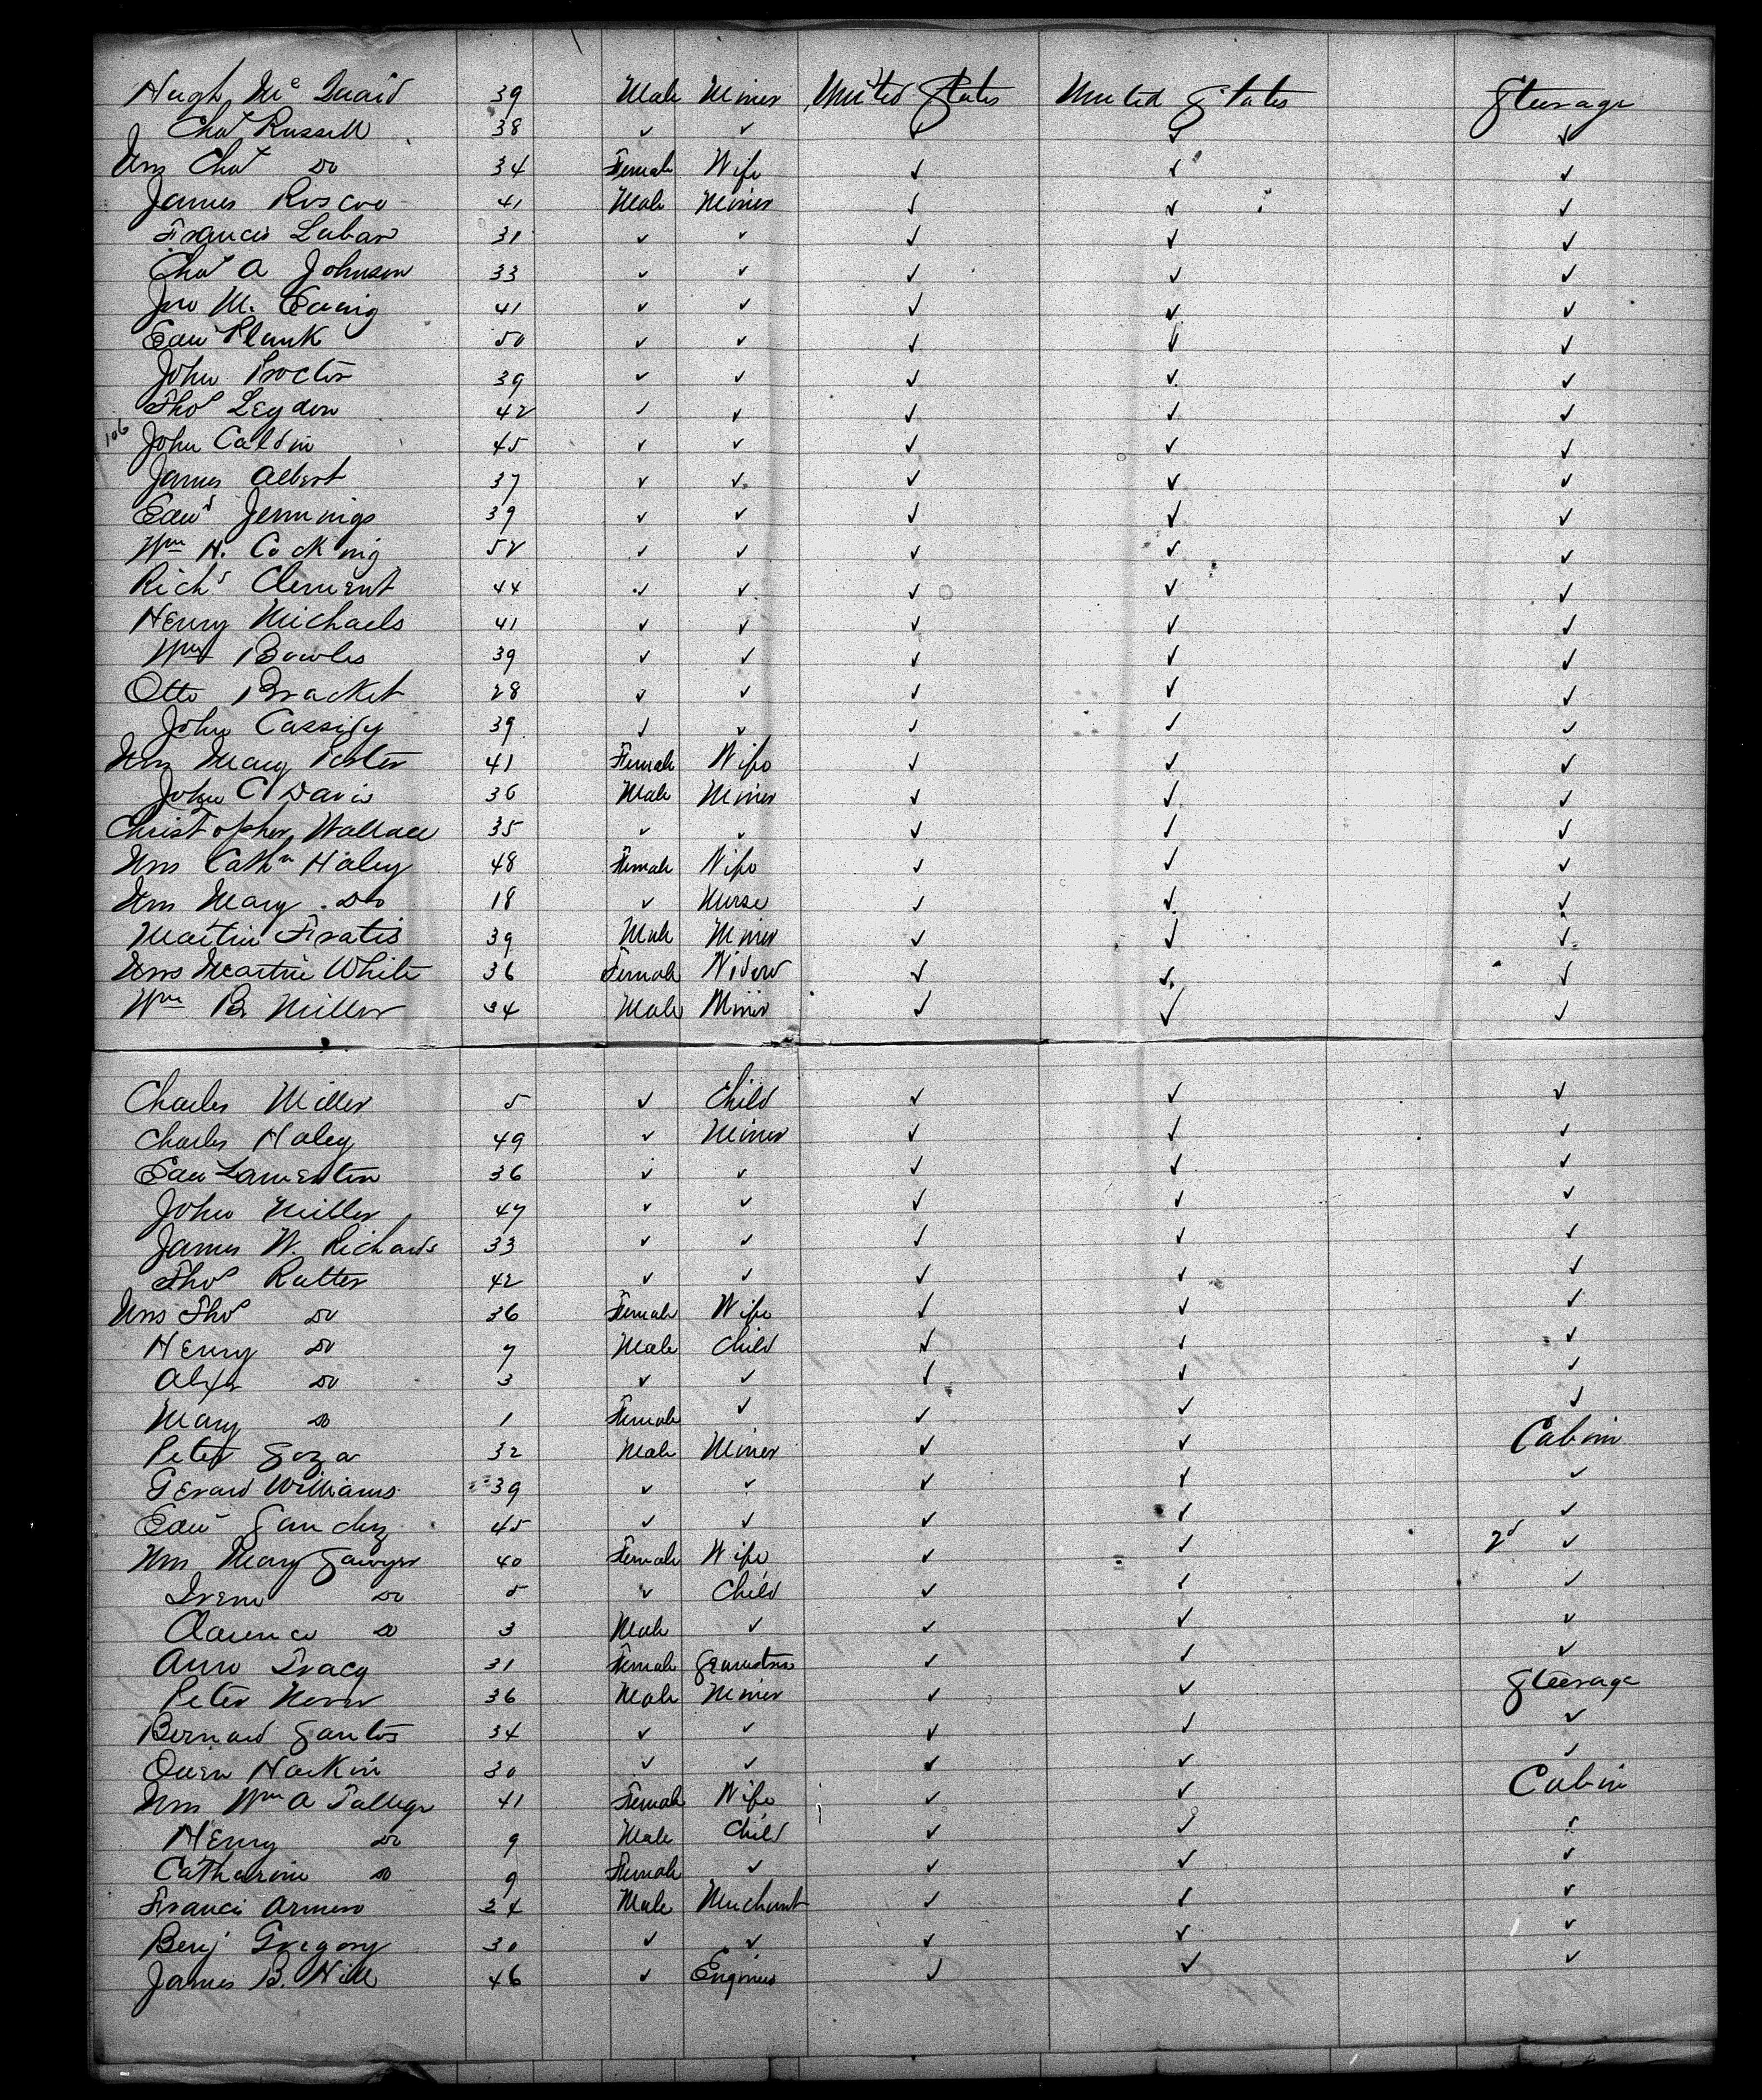 Hugh McQuaid 39 Male Miner United States United States Steerage
Chas Russell 38 ✓ ✓ ✓ ✓ ✓
Mrs Chas Do 34 Female Wife ✓ ✓ ✓
James Roscoe 41 Male Miner ✓ ✓ ✓
Francis Labar 31 ✓ ✓ ✓ ✓ ✓
Chas A Johnson 33 ✓ ✓ ✓ ✓ ✓
Jno M. Ewing 41 ✓ ✓ ✓ ✓ ✓
Edw Plank 50 ✓ ✓ ✓ ✓ ✓
John Procter 39 ✓ ✓ ✓ ✓ ✓
Thos Leyden 42 ✓ ✓ ✓ ✓ ✓
106 John Caldin 45 ✓ ✓ ✓ ✓ ✓
James Albert 37 ✓ ✓ ✓ ✓ ✓
Edwd Jennings 39 ✓ ✓ ✓ ✓ ✓
Wm H. Cocking 52 ✓ ✓ ✓ ✓ ✓
Richd Clement 44 ✓ ✓ ✓ ✓ ✓
Henry Michaels 41 ✓ ✓ ✓ ✓ ✓
Wm Bowles 39 ✓ ✓ ✓ ✓ ✓
Otto Bracket 28 ✓ ✓ ✓ ✓ ✓
John Cassidy 39 ✓ ✓ ✓ ✓ ✓
Mrs Mary Porter 41 Female Wife ✓ ✓ ✓
John C Davis 36 Male Miner ✓ ✓ ✓
Christopher Wallace 35 ✓ ✓ ✓ ✓ ✓
Mrs Cathn Haley 48 Female Wife ✓ ✓ ✓
Mrs Mary Do 18 ✓ Nurse ✓ ✓ ✓
Martin Fratis 39 Male Miner ✓ ✓ ✓
Mrs Martin White 36 Female Widow ✓ ✓ ✓
Wm B. Miller 34 Male Miner ✓ ✓ ✓
Charles Miller 5 ✓ Child ✓ ✓ ✓
Charles Haley 49 ✓ Miner ✓ ✓ ✓
Edw Lamenton 36 ✓ ✓ ✓ ✓ ✓
John Miller 47 ✓ ✓ ✓ ✓ ✓
James W. Richards 33 ✓ ✓ ✓ ✓ ✓
Thos Rutter 42 ✓ ✓ ✓ ✓ ✓
Mrs Thos Do 36 Female Wife ✓ ✓ ✓
Henry Do 7 Male Child ✓ ✓ ✓
Alexr Do 3 ✓ ✓ ✓ ✓ ✓
Mary Do 1 Female ✓ ✓ ✓ ✓
Peter Soza 32 Male Miner ✓ ✓ Cabin
Gerard Williams 39 ✓ ✓ ✓ ✓ ✓
Edw Sanchez 45 ✓ ✓ ✓ ✓ ✓
Mrs Mary Sawyer 40 Female Wife ✓ ✓ 2d ✓
Irene Do 5 ✓ Child ✓ ✓ ✓
Clarence Do 3 Male ✓ ✓ ✓ ✓
Ann Tracy 31 Female Seamstress ✓ ✓ ✓
Peter 36 Male Miner ✓ ✓ Steerage
Bernard Santos 34 ✓ ✓ ✓ ✓ ✓
Owen Harkin 30 ✓ ✓ ✓ ✓ ✓
Mrs Wm A 41 Female Wife ✓ ✓ Cabin
Henry Do 9 Male Child ✓ ✓ ✓
Catharine Do 9 Female ✓ ✓ ✓ ✓
Francis Armero 24 Male Merchant ✓ ✓ ✓
Benj Gregory 30 ✓ ✓ ✓ ✓ ✓
James B. Hill 46 ✓ Engineer ✓ ✓ ✓